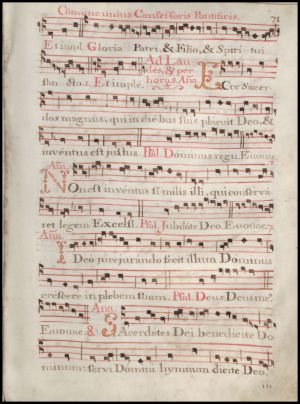 Commune unius Confessoris Pontificis.
71
Et impl. Gloria Patri, & Filio, & Spiri - tui
Ad Lau
san - cto. Et imple. des, & per horas. Aña. ECce Sacer-
dos magnus, qui in diebus suis placuit Deo, &
inventus est justus. Psal. Dominus regn. Evouae.
Aña.
NOn est inventus si-milis illi, qui conserva-
ret legem Excelsi. Psal. Jubilate Deo. Evouae. 7.
Aña.
IDeo jurejurando fecit illum Dominus
crescere in plebem suam. Psal. Deus Deus me9.
Aña
Evouae. 8. SAcerdotes Dei benedicite Do-
minum: servi Domini hymnum dicite Deo,
iii